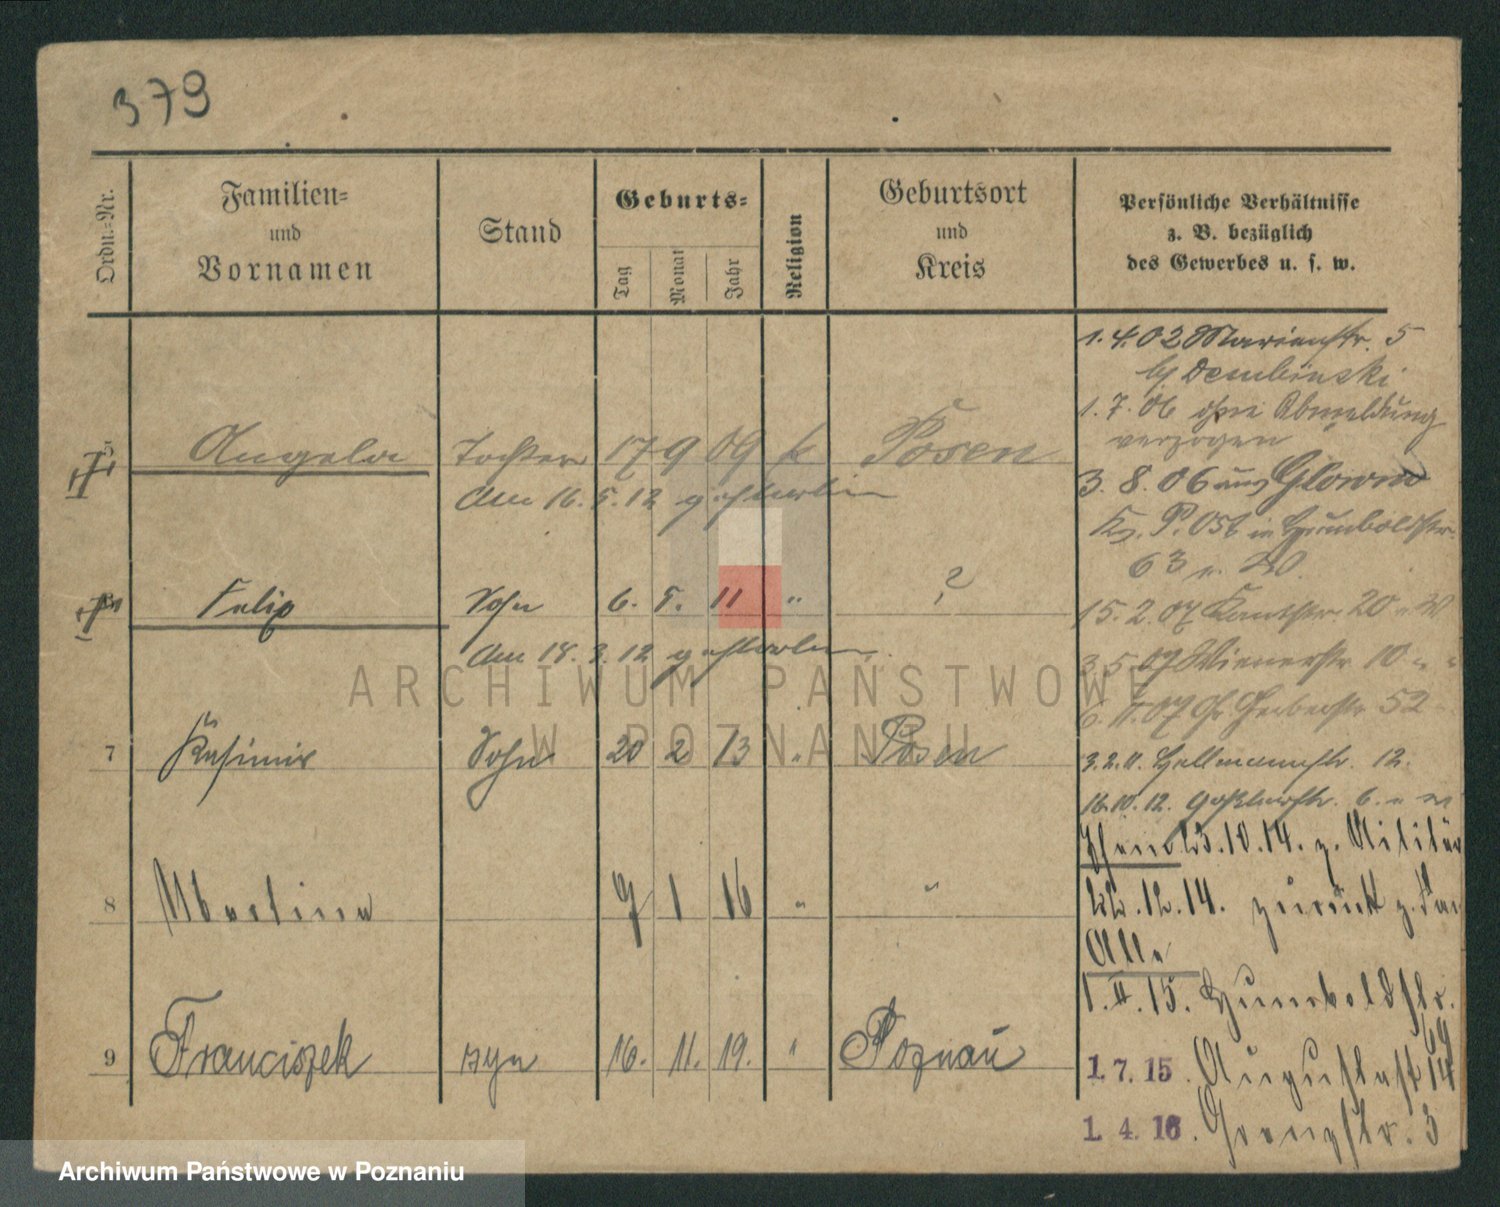 379
Ordn.-Nr.
Familien-
und
Vornamen
Stand
Geburts-
Tag
Monat
Jahr
Religion
Geburtsort
und
Kreis
Persönliche Verhältnisse
z. B. bezüglich
des Gewerbes u. s. w.
Angela Tochter 17 9 09 k Posen
Am 16. 5. 12 gestorben
Felix Sohn 6. 5. 11 " ?
Am 18. 3. 12 gestorben
7 Kasimir Sohn 20 2 13 " Posen
8 9 1 16 " "
9 Franciszek syn 16. 11. 19. " Poznań
1. 4. 02 Marienstr. 5
by Dembinski
1. 7. 06 ohne Abmeldung
verzogen
3. 8. 06 aus Glowno
Kr. P. Ost in Humboldtstr.
63
15. 2. 07 Kantstr. 20
3. 5. 07 Wienerstr. 10 " "
6. 11. 07 Gr. Gerberstr. 52
3. 2. 11. Hellmannstr. 12.
16. 10. 12. Goßlerstr. 6.
23. 10. 14. z. Militär
22. 12. 14. zurück z. Fam
Alle
1. II. 15. Humboldstr.
1. 7. 15. Augustastr 14
1. 4. 16.
ARCHIWUM PAŃSTWOWE
W POZNANIU
Archiwum Państwowe w Poznaniu